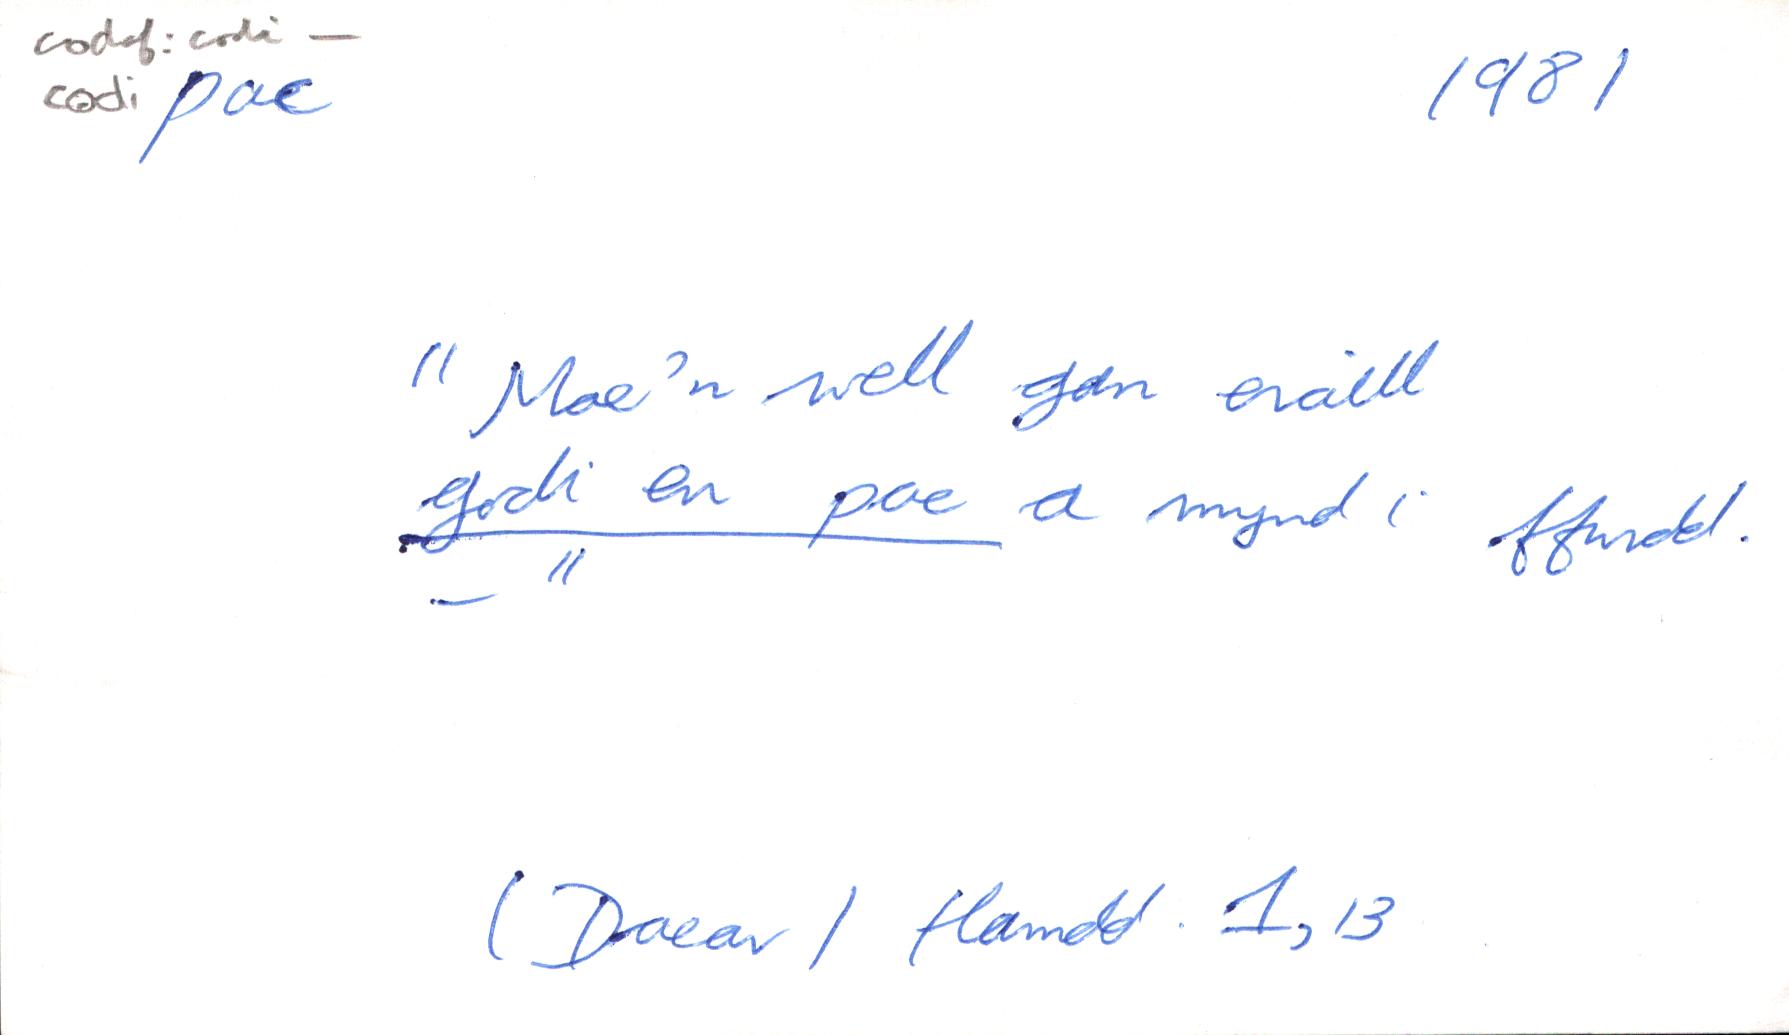 codaf: codi —
codi pac 1981
"Mae'n well gan eraill
godi eu pac a mynd i ffwrdd.
— "
(Daear) Hamdd. 1, 13